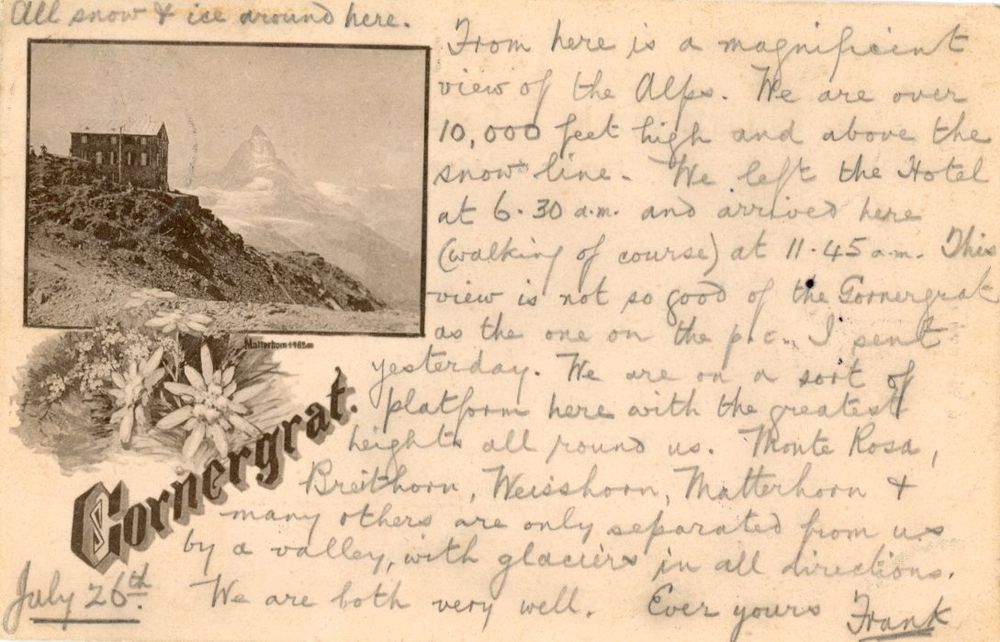 All snow & ice around here.
From here is a magnificent
view of the Alps. We are over
10,000 feet high and above the
snow line. We left the Hotel
at 6.30 a.m. and arrived here
(walking of course) at 11.45 a.m. This
view is not so good of the Gornergrat
as the one on the p.c. I sent
yesterday. We are on a sort of
platform here with the greatest
heights all round us. Monte Rosa,
Breithorn, Weisshorn, Matterhorn &
many others are only separated from us
by a valley, with glaciers in all directions.
We are both very well. Ever yours Frank
July 26th.
Matterhorn 4485m
Gornergrat.